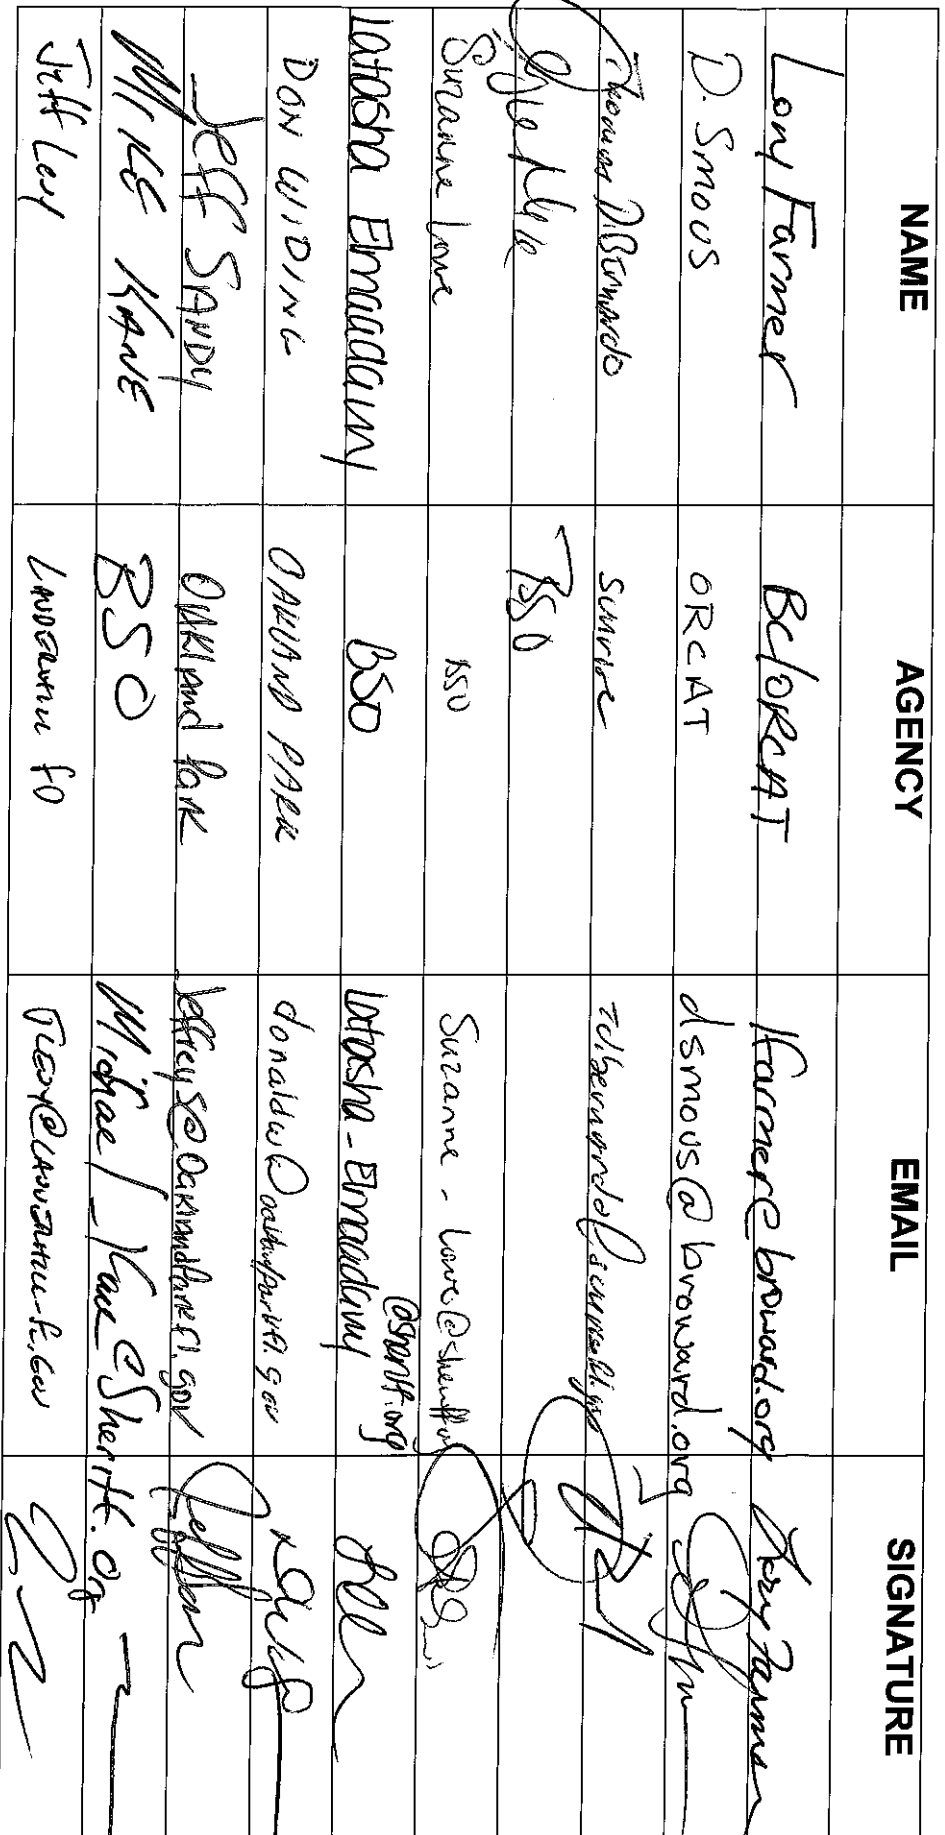 NAME AGENCY EMAIL SIGNATURE
Lory Farmer BC/ORCAT lfarmer@broward.org Lory Farmer
D. Smous ORCAT dsmous@broward.org
Thomas DiBernardo Sunrise
BSO
Suzanne Lowe BSO Suzanne-Lowe@sheriff.org
Latasha Elmaadawy BSO Latasha-Elmaadawy@sheriff.org
DON WIDING OAKLAND PARK donaldw@oaklandparkfl.gov
Jeff SANDY OAKland Park JeffreyS@Oaklandparkfl.gov
MIKE KANE BSO Michael_Kane@Sheriff.org
Jeff Levy LAUDERHILL FD JLEVY@LAUDERHILL-FL.GOV